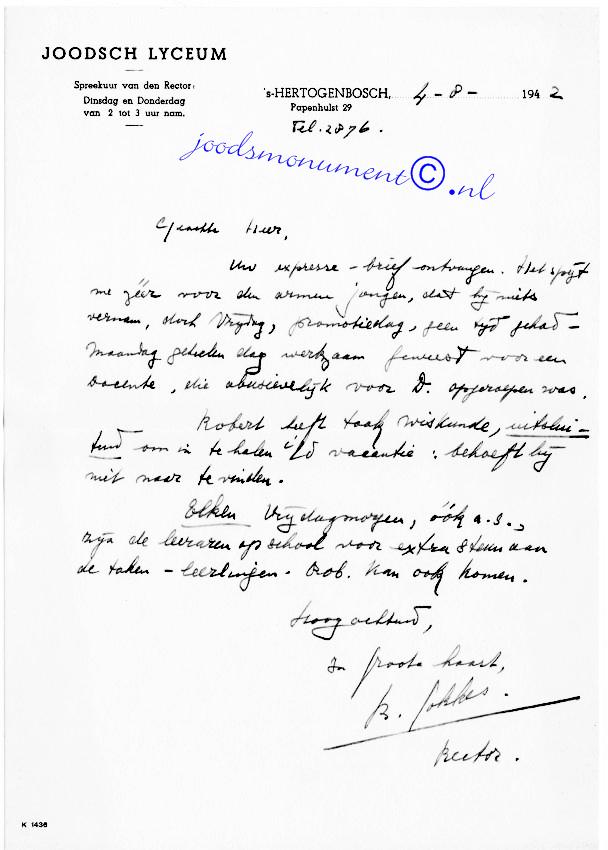 JOODSCH LYCEUM
Spreekuur van den Rector:
Dinsdag en Donderdag
van 2 tot 3 uur nam.
's-HERTOGENBOSCH, 4 - 8 - 1942
Papenhulst 29
Tel. 2876.
joodsmonument©.nl
Geachte Heer,
Uw expresse-brief ontvangen. Het spijt
me zéér voor den armen jongen, dat hij niets
vernam, doch Vrijdag, promotiedag, geen tijd gehad -
Maandag geheelen dag werkzaam geweest voor een
Docente, die abusievelijk voor D. opgeroepen was.
Robert heeft taak wiskunde, uitslui-
tend om in te halen i/d vacantie: behoeft hij
niet naar te vinden.
Elken Vrijdagmorgen, óók a.s.,
zijn de leeraren op school voor extra steun aan
de taken-leerlingen. Rob. kan ook komen.
Hoogachtend,
In groote haast,
Rector.
K 1436